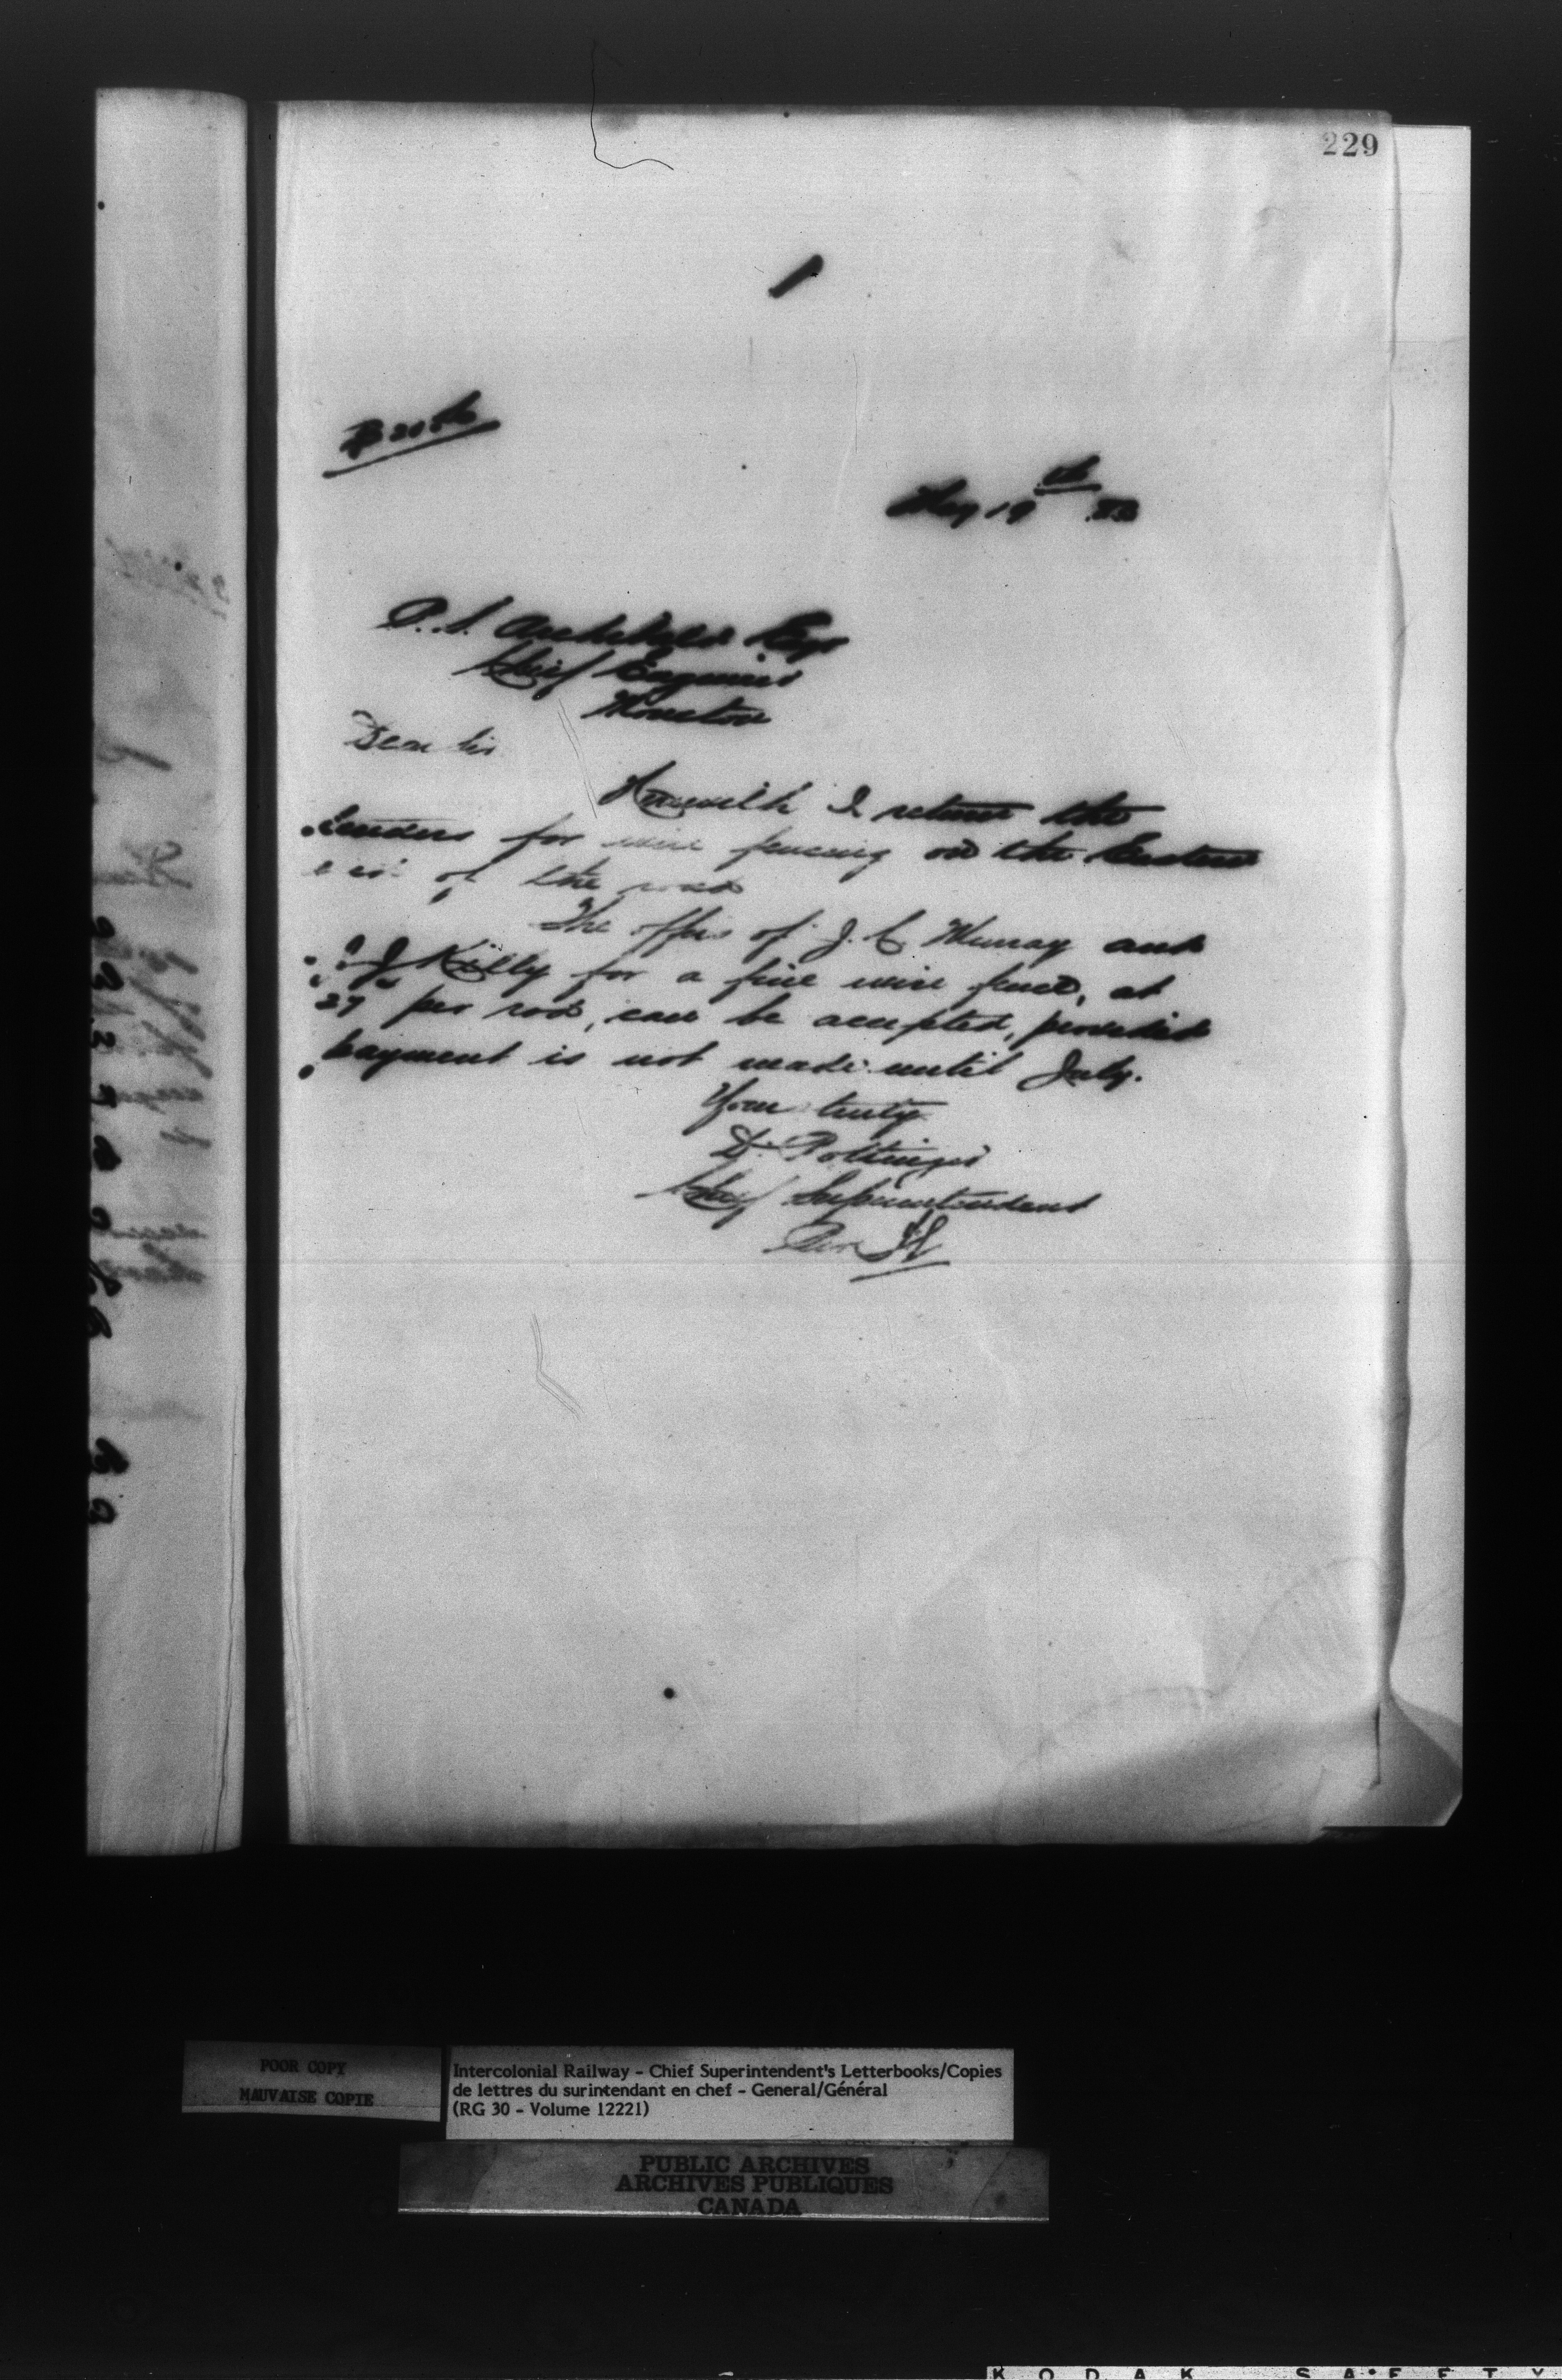 229
May 19th 83
P. S. Archibald Esqr
Chief Engineer
Moncton
Dear Sir
Herewith I return the
tenders for wire fencing on the Eastern
end of the road
The offers of J. C. Murray and
J Killy for a five wire fence, at
27 per rod, can be accepted, provided
payment is not made until July.
Yours truly
D. Pottinger
Chief Superintendent
Per
POOR COPY
MAUVAISE COPIE
Intercolonial Railway - Chief Superintendent's Letterbooks/Copies
de lettres du surintendant en chef - General/Général
(RG 30 - Volume 12221)
PUBLIC ARCHIVES
ARCHIVES PUBLIQUES
CANADA
KODAK SAFETY